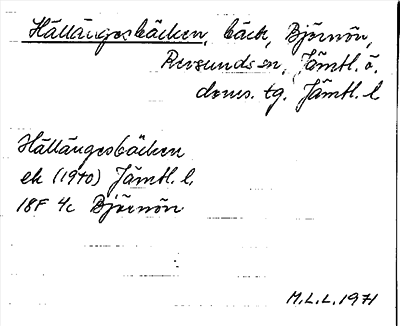 Hållängesbäcken, bäck, Björnön,
Revsunds sn, Jämtl. ö.
doms. tg. Jämtl. l
Hållängesbäcken
ek (1970) Jämtl. l.
18F 4c Björnön
M.L.L. 1971